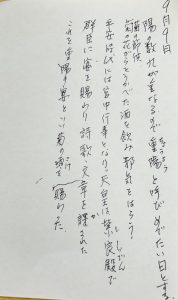 9月9日
陽の数九が重なるので重陽と呼びめでたい日とする。
ちょうよう
菊の節供
菊の花びらをうかべた酒を飲み邪気をはらう。
平安時代には宮中行事となり天皇は紫宸殿で
ししんでん
群臣に宴を賜わり詩歌・文章を課された
か
これを重陽の宴といい菊の酒を賜わった。